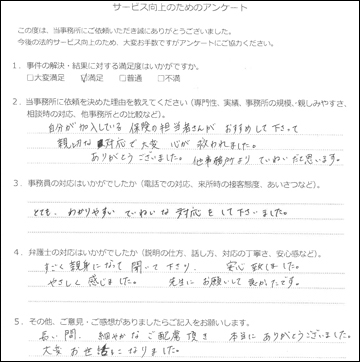 サービス向上のためのアンケート
この度は、当事務所にご依頼いただき誠にありがとうございました。
今後の法的サービス向上のため、大変お手数ですがアンケートにご協力ください。
1．事件の解決・結果に対する満足度はいかがですか。
□大変満足 ☑満足 □普通 □不満
2．当事務所に依頼を決めた理由を教えてください（専門性、実績、事務所の規模・親しみやすさ、
相談時の対応、他事務所との比較など）。
自分が加入している保険の担当者さんが おすすめして下さって
親切な対応で大変 心が救われました。
ありがとうございました。他事務所より ていねいだと思います。
3．事務員の対応はいかがでしたか（電話での対応、来所時の接客態度、あいさつなど）。
とても、わかりやすい ていねいな 対応をして下さいました。
4．弁護士の対応はいかがでしたか（説明の仕方、話し方、対応の丁寧さ、安心感など）。
すごく親身になって 聞いて下さり、 安心致しました。
やさしく感じました。 先生に お願いして良かったです。
5．その他、ご意見・ご感想がありましたらご記入をお願いします。
長い間、細やかなご配慮頂き 本当に ありがとうございました。
大変お世話になりました。